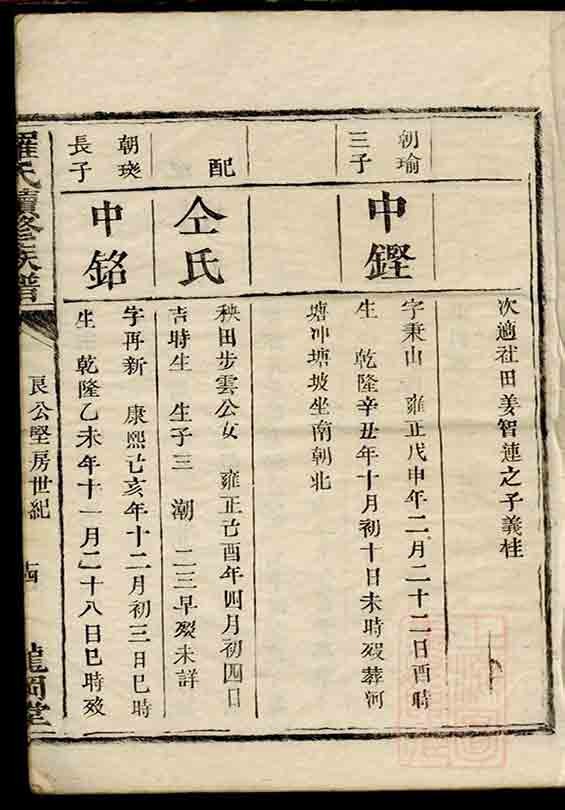 次適社田姜智連之子義桂
朝瑜
三子
中鏗
字秉山　雍正戊申年二月二十二日酉時
生　乾隆辛丑年十月初十日未時歿葬河
塘冲塘坡坐南朝北
配
仝氏
秧田步雲公女　雍正己酉年四月初四日
吉時生　生子三　潮　二三早歿未詳
朝琰
長子
中銘
字再新　康熙己亥年十二月初三日巳時
生　乾隆乙未年十一月二十八日巳時歿
羅氏續修族譜
良公堅房世紀
龍岡堂